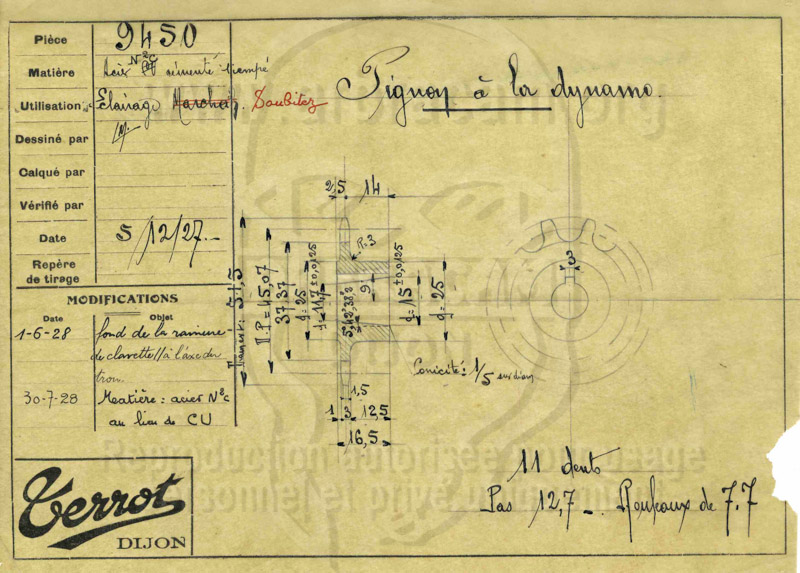 Pièce 9450
Matière Acier N°2c cémenté trempé
Utilisation Eclairage Soubitez
Dessiné par
Calqué par
Vérifié par
Date 5/12/27.-
Repère
de tirage
MODIFICATIONS
Date Objet
1-6-28 fond de la rainure
de clavette // à l'axe du
trou.
30-7-28 Matière: acier N°2c
au lieu de CU
Terrot
DIJON
Pignon à la dynamo.
2,5 14
R.3
3
51,5
D.P = 45,07
37,37
d = 25
9
d = 15 ±0,0125
d = 25
Conicité: 1/5 sur diam
1,5
1 3 12,5
16,5
11 dents
Pas 12,7 - Rouleaux de 7.7
Reproduction autorisée pour usage
personnel et privé